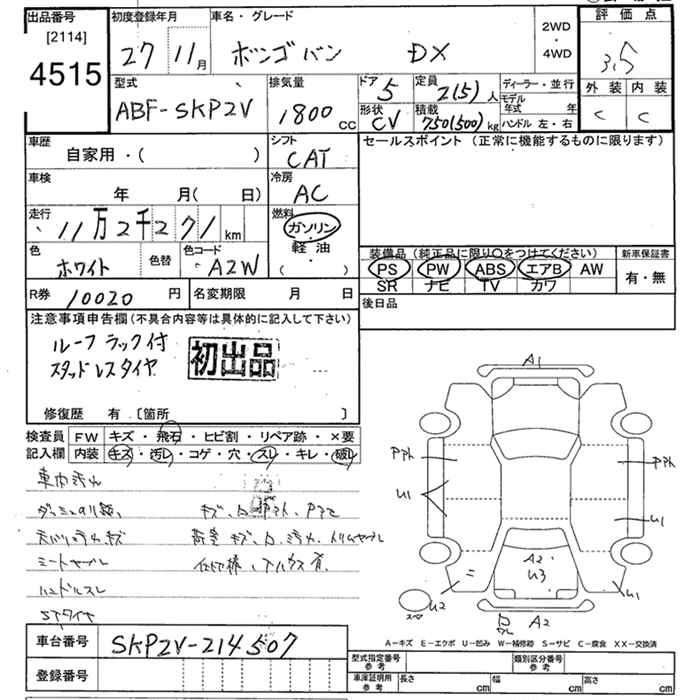 出品番号
[2114]
4515
初度登録年月
27 11月
車名・グレード
ボンゴ バン DX
2WD
・
4WD
評価点
3.5
外装 内装
C C
型式
ABF-SKP2V
排気量
1800 CC
ドア 5
形状 CV
定員 2(5)人
積載 750(500)kg
ディーラー・並行
モデル年式 年
ハンドル 左・右
車歴
自家用・( )
シフト
CAT
セールスポイント (正常に機能するものに限ります)
車検
年 月( 日)
冷房
AC
走行
11万2千271km
燃料
ガソリン
・
軽油
・
( )
色
ホワイト
色替
色コード
A2W
装備品 (純正品に限り○をつけてください)
PS PW ABS エアB AW
SR ナビ TV カワ
新車保証書
有・無
R券 10020円
名変期限 月 日
後日品
注意事項申告欄(不具合内容等は具体的に記入して下さい)
ルーフラック付
スタッドレスタイヤ
初出品
修復歴 有 [箇所 ]
検査員
記入欄
FW キズ・飛石・ヒビ割・リペア跡・×要
内装 キズ・汚レ・コゲ・穴・スレ・キレ・破レ
車内汚れ
ミートケーブル
ハンドルスレ
A1
Pアト
Pアト
U1
U1
A2
U3
U2
U1
A2
A－キズ E－エクボ U－凹み W－補修跡 S－サビ C－腐食 XX－交換済
車台番号 SKP2V-214507
登録番号
型式指定番号
参考
類別区分番号
参考
車庫証明用
参考
長さ cm 幅 cm 高さ cm